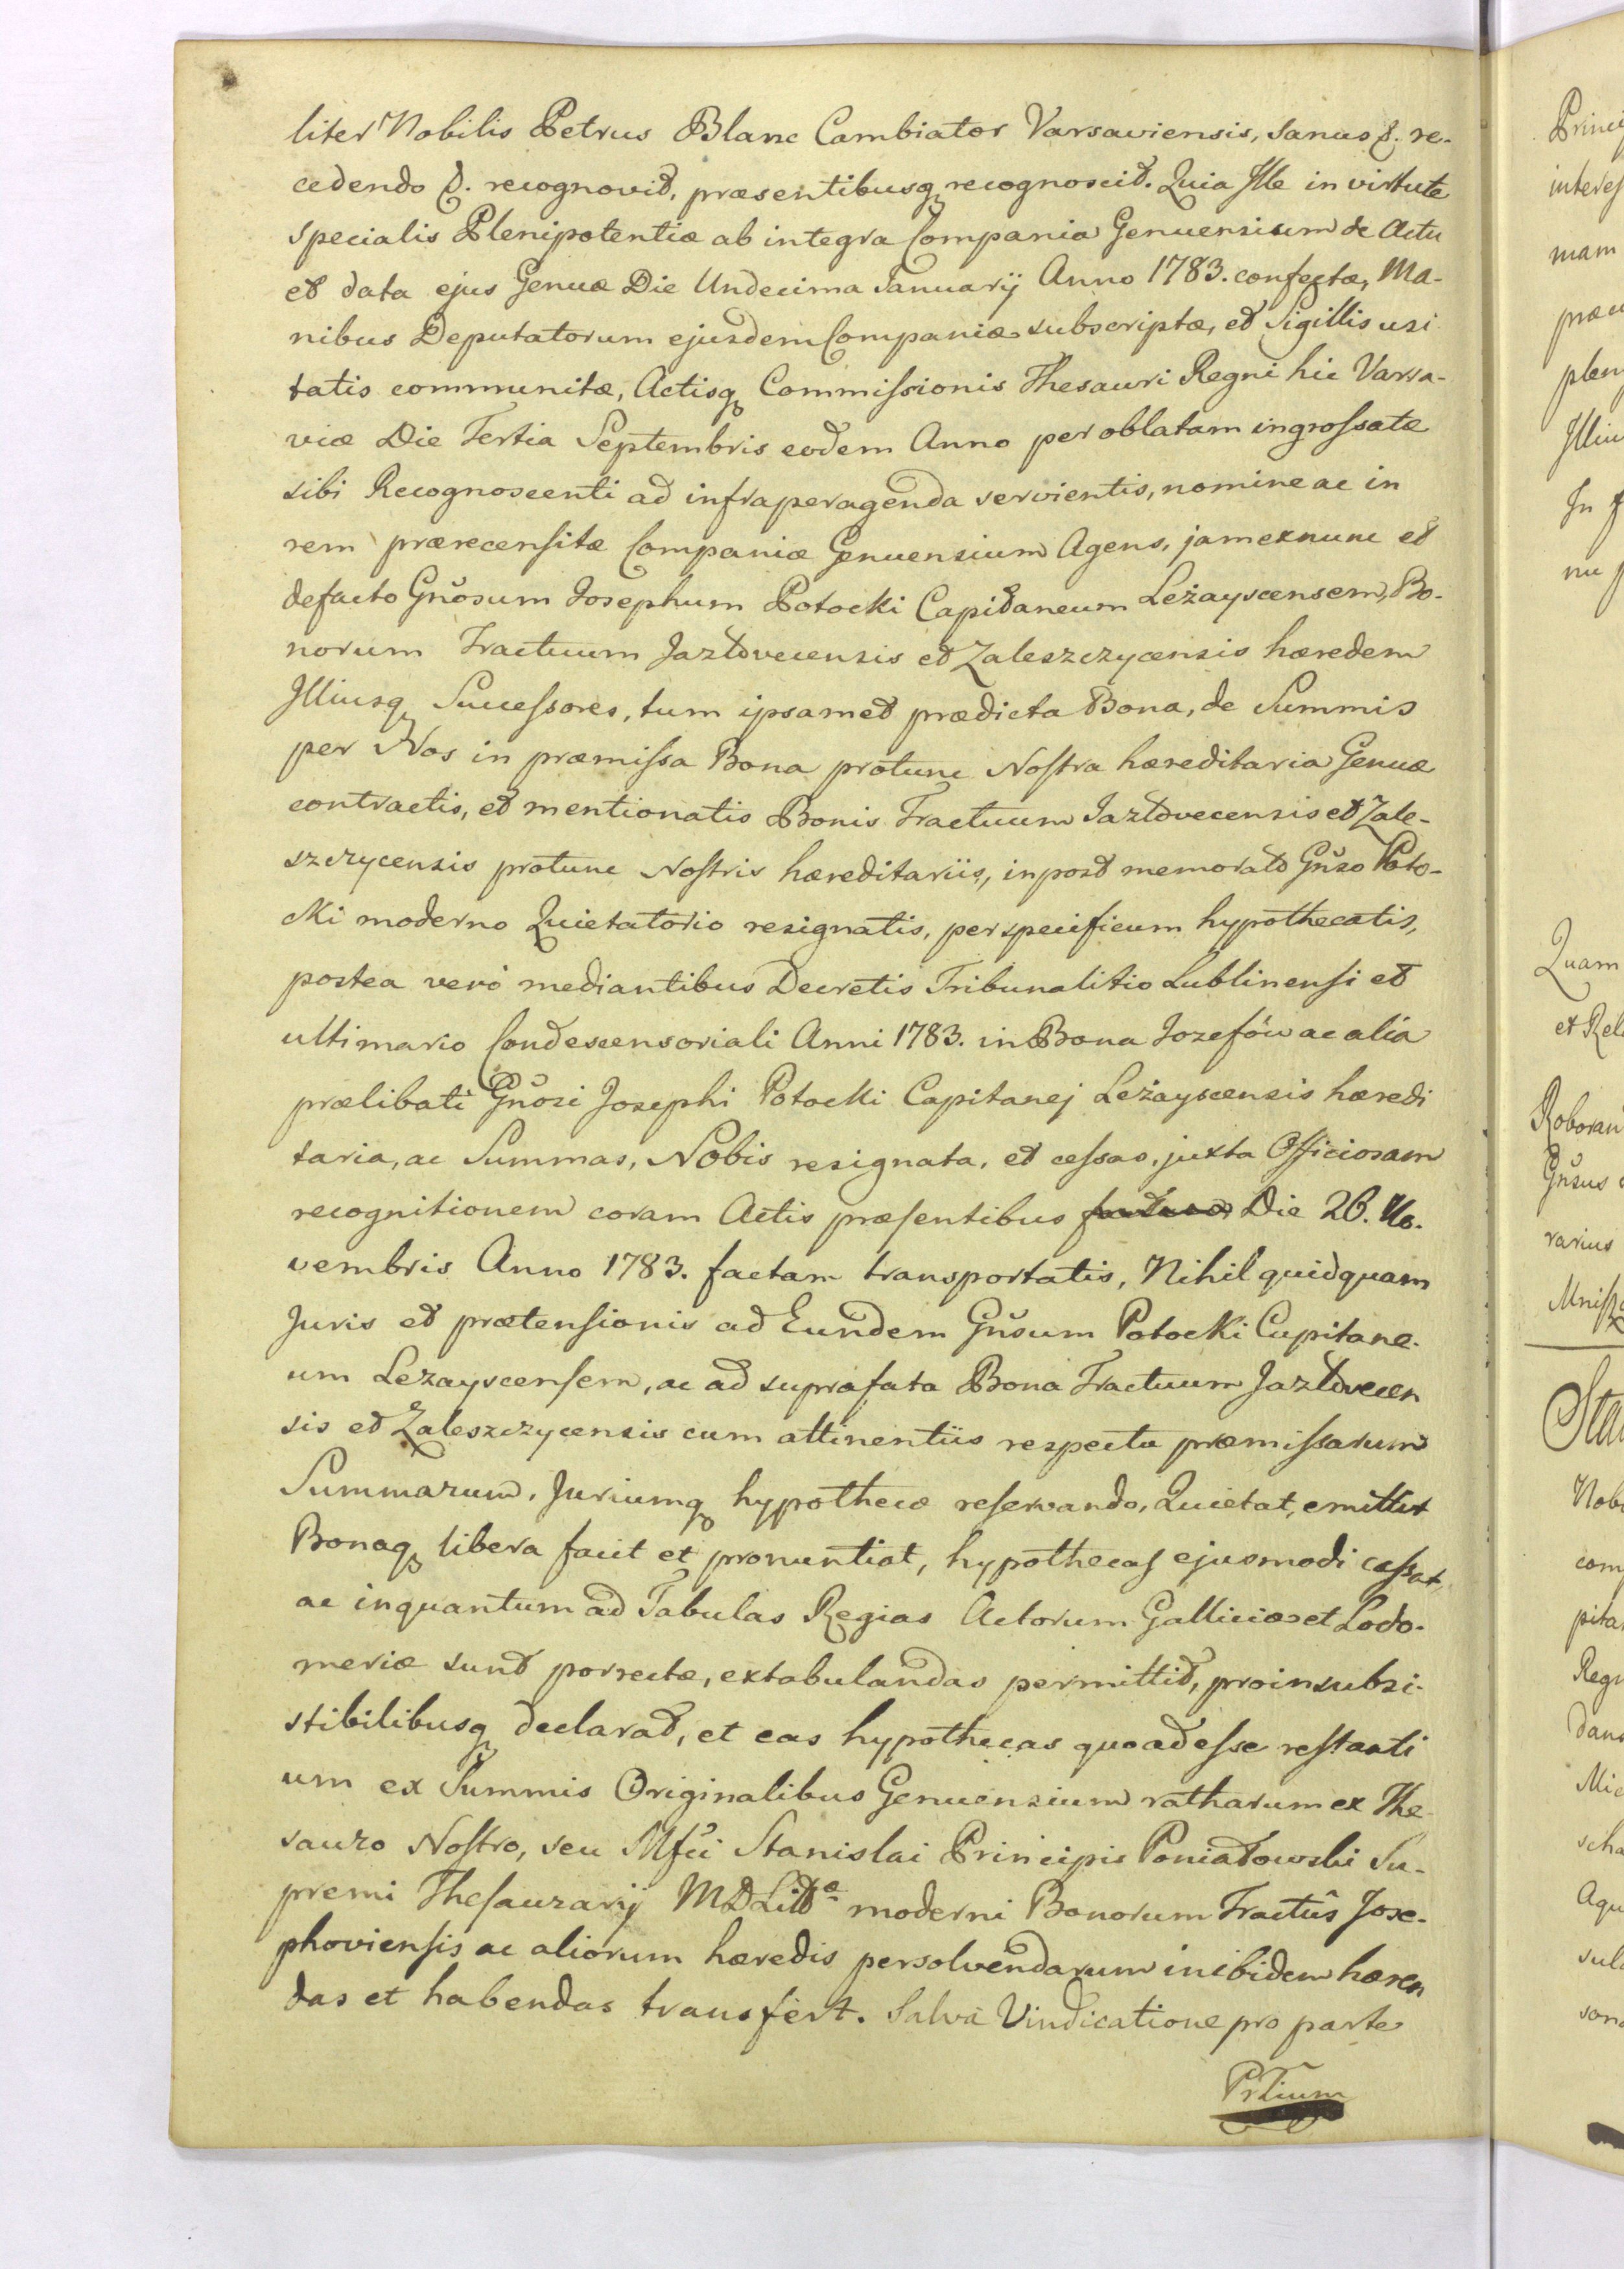 liter Nobilis Petrus Blanc Cambiator Varsaviensis, Sanus &. re-
cedendo &. recognovit, præsentibusq recognoscit. Quia Ille in virtute
specialis Plenipotentiæ ab integra Compania Genuensium de Actu
et data ejus Genuæ Die Undecima Januarij Anno 1783. confectæ, Ma-
nibus Deputatorum ejusdem Companiæ subscriptæ, et Sigillis usi
tatis communitæ, Actisq Commissionis Thesauri Regni hic Varsa-
viæ Die Tertia Septembris eodem Anno per oblatam ingrossatæ
sibi Recognoscenti ad infraperagenda servientis, nomine ac in
rem prærecensitæ Companiæ Genuensium Agens, jam exnunc et
defacto Gñosum Josephum Potocki Capitaneum Leżayscensem, Bo-
norum Tractuum Jazłovecensis et Zaleszczycensis hæredem
Illiusq Successores, tum ipsamet prædicta Bona, de Summis
per Nos in præmissa Bona protunc Nostra hæreditaria Genuæ
contractis, et mentionatis Bonis Tractuum Jazłovecensis et Zale-
szczycensis protunc Nostris hæreditariis, inpost memorato Gñso Poto-
cki moderno Quietatorio resignatis, per specificum hypothecatis,
postea verò mediantibus Decretis Tribunalitio Lublinensi et
ultimario Condescensoriali Anni 1783. in Bona Jozefów ac alia
prælibati Gñosi Josephi Potocki Capitanej Leżayscensis hæredi
taria, ac Summas, Nobis resignata, et cessas, juxta Officiosam
recognitionem coram Actis præsentibus Die 26. No-
vembris Anno 1783. factam transportatis, Nihil quidquam
Juris et prætensionis ad Eundem Gñsum Potocki Capitane-
um Lezayscensem, ac ad suprafata Bona Tractuum Jazłovecen
sis et Zaleszczycensis cum attinentiis respectu præmissarum
Summarum, Juriumq hypothecæ reservando, Quietat, emittit
Bonaq libera facit et pronuntiat, hypothecas ejusmodi cassat,
ac inquantum ad Tabulas Regias Actorum Galliciæ et Lodo-
meriæ sunt porrectæ, extabulandas permittit, proinsubsi-
stibilibusq declarat, et eas hypothecas quoad esse restanti
um ex Summis Originalibus Genuensium ratharum ex The-
sauro Nostro, seu Mfci Stanislai Principis Poniatowski Su-
premi Thesaurarij MDLittæ moderni Bonorum Tractûs Jose-
phoviensis ac aliorum hæredis persolvendarum inibidem hæren
das et habendas transfert. Salvâ Vindicatione pro parte
Prtium